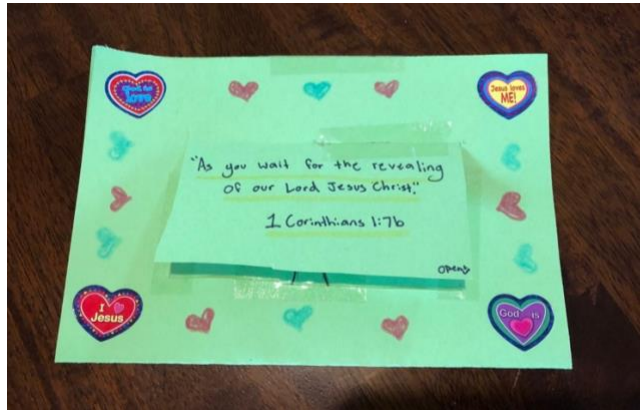 God is
LOVE
Jesus loves
ME!
"As you wait for the revealing
of our Lord Jesus Christ."
1 Corinthians 1:7b
open
I
Jesus
God is